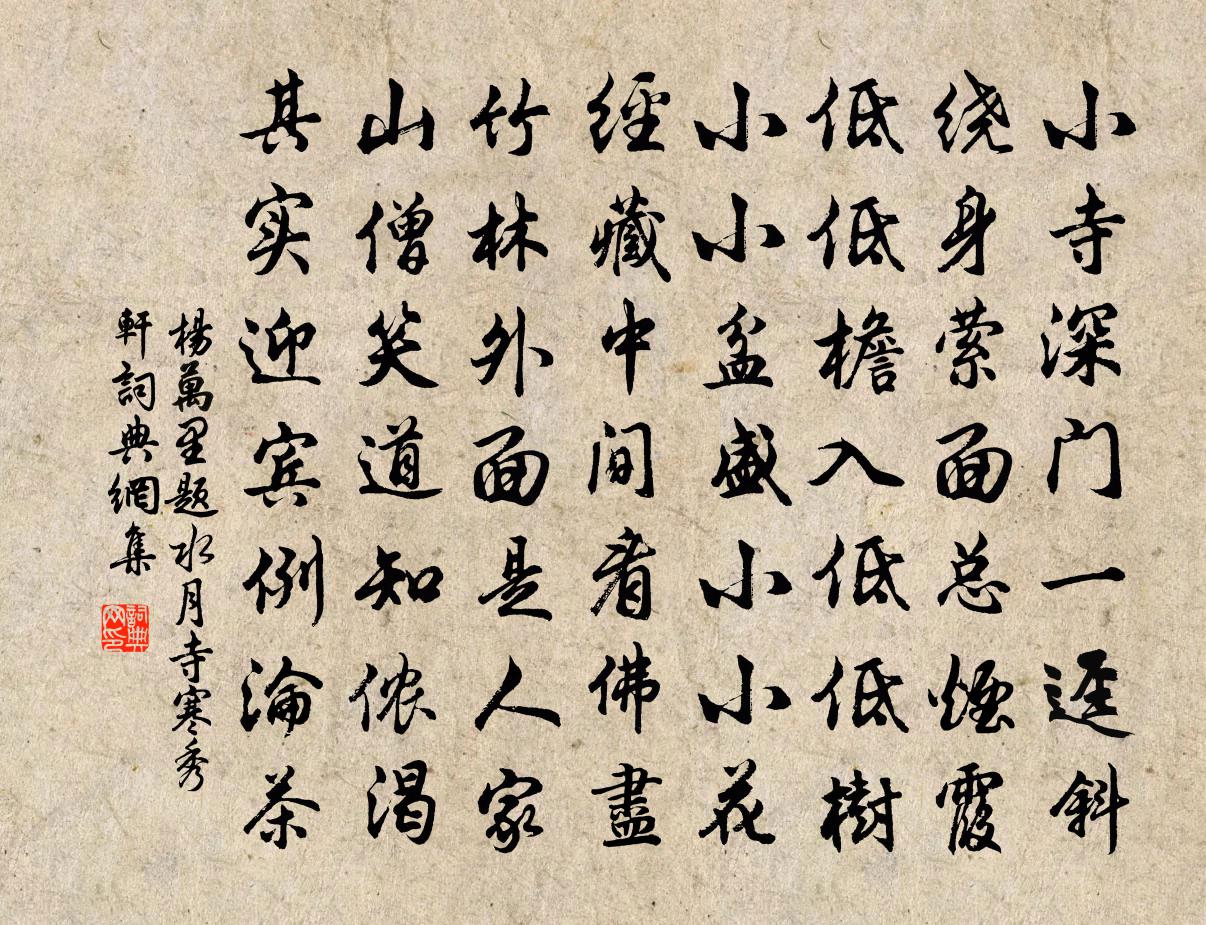 小寺深门一迳斜
绕身萦面总煙霞
低低檐入低低樹
小小盆盛小小花
經藏中间看佛畫
竹林外面是人家
山僧笑道知侬渴
其实迎宾例瀹茶
楊萬里题水月寺寒秀
軒詞典網集
詞典
网印